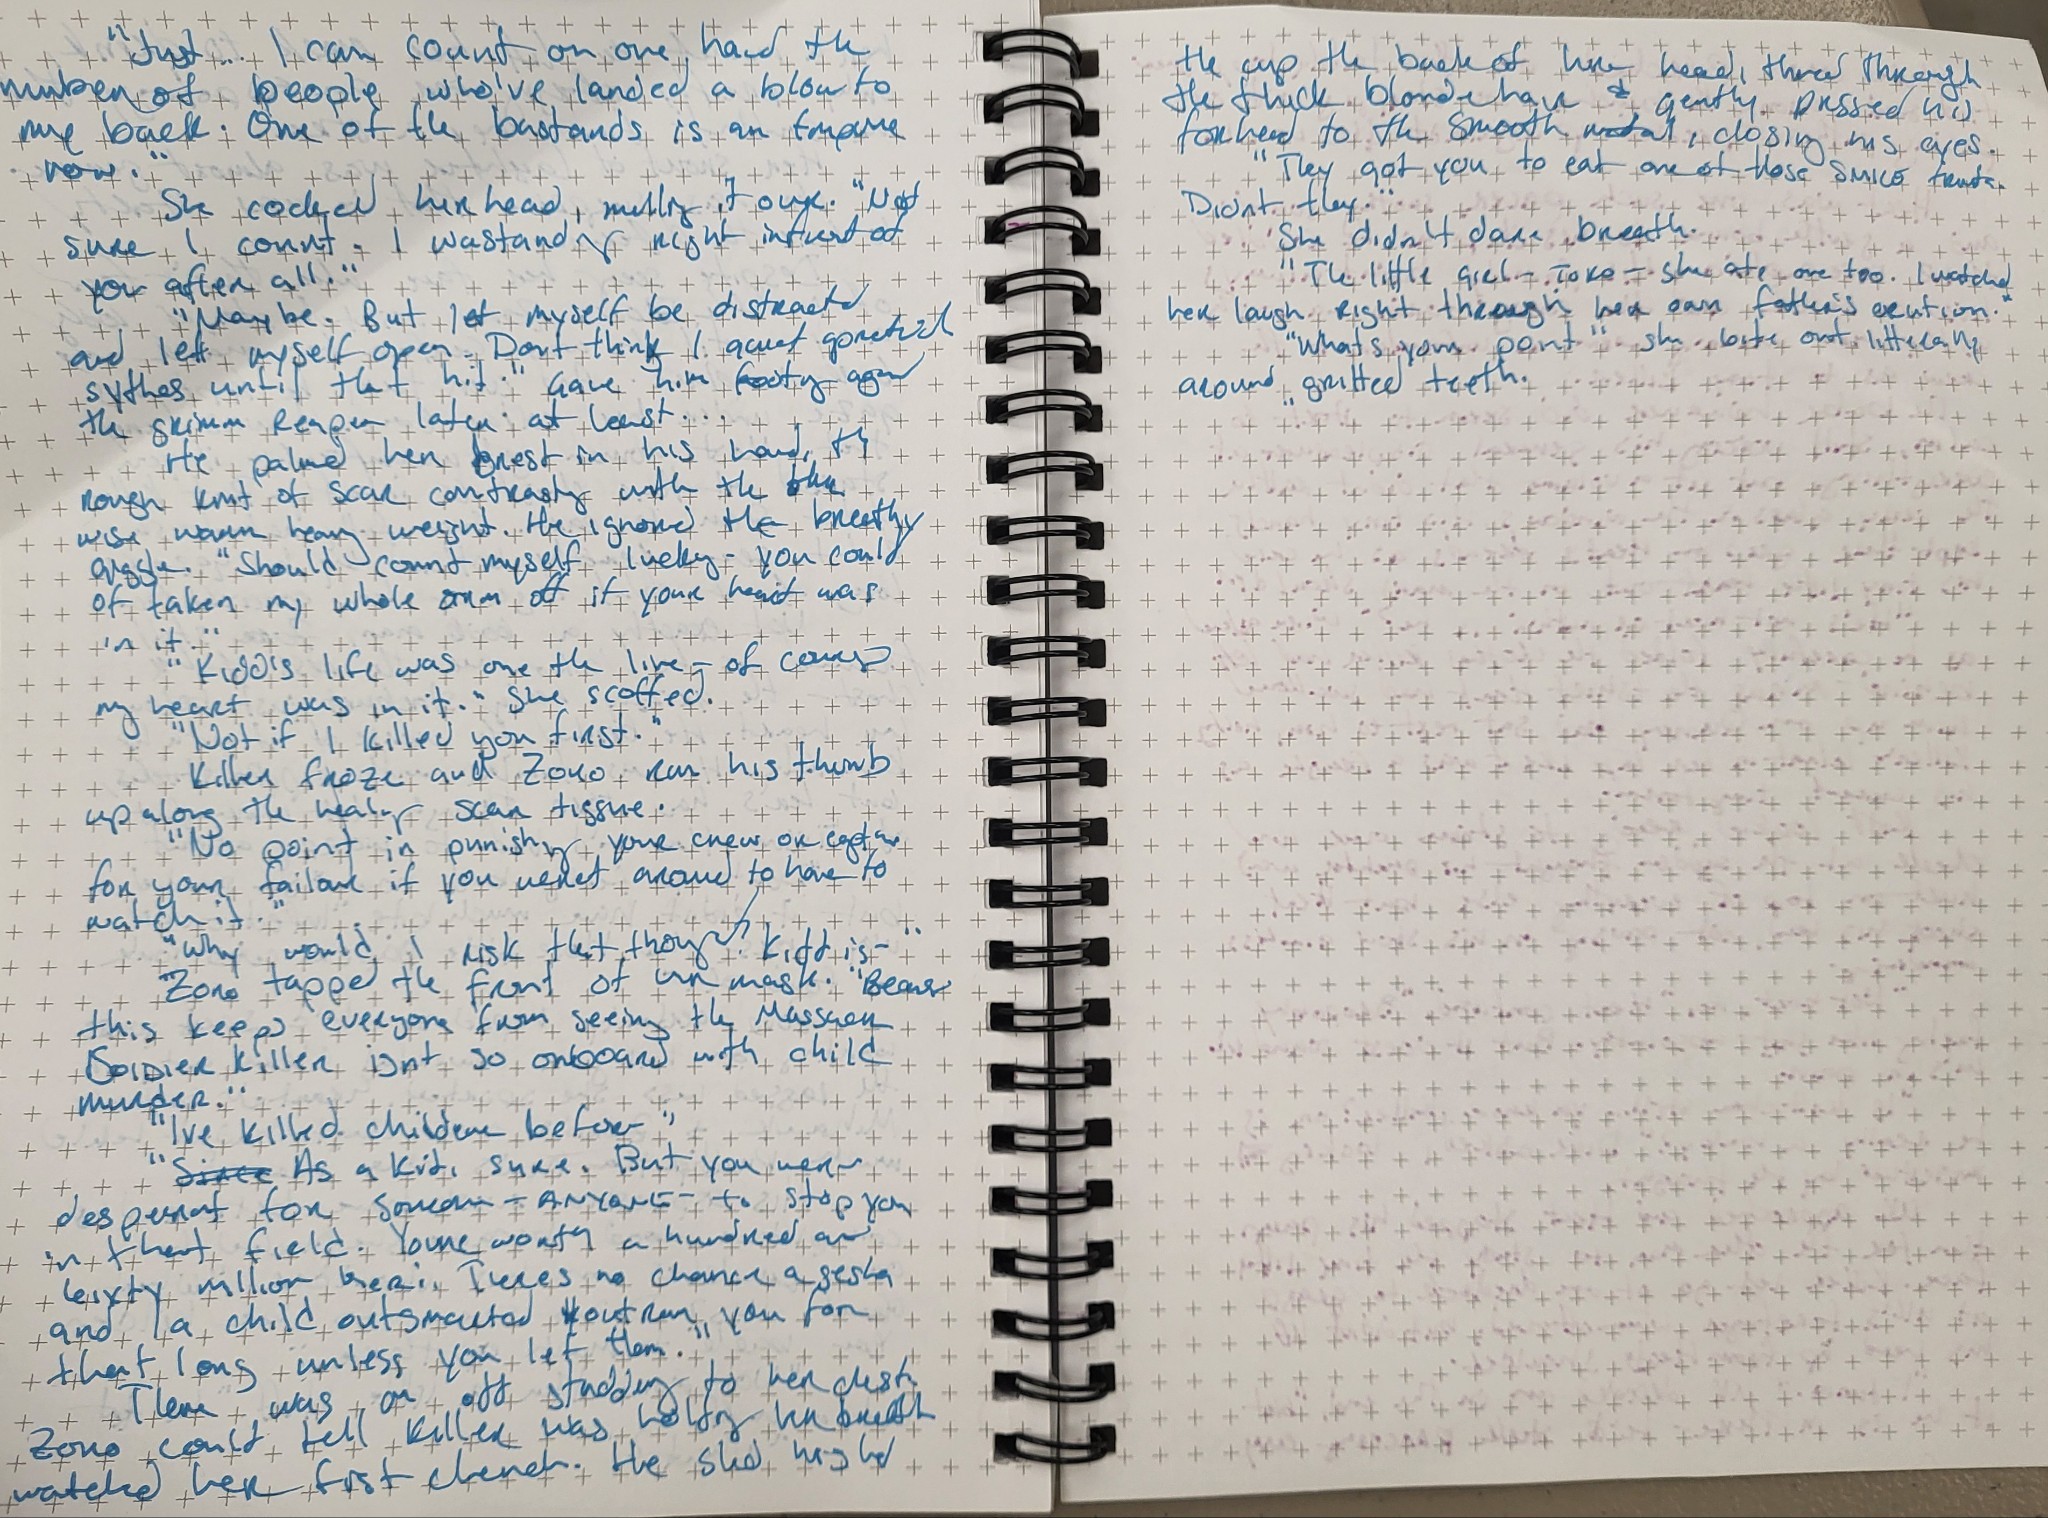 "Just... I can count on one hand the
number of people who've landed a blow to
my back. One of the bastards is an
now."
She cocked her head, mulling it over. "Not
sure I count. I wastanding right infront of
you after all."
"Maybe. But let myself be distracted
and left myself open. Dont think I
sythes until that hit." Gave him again
the grimm Reaper later at least...
He palmed her brest in his hand, the
rough knit of scar contrasting with the other
wise warm heavy weight. He ignored the breathy
giggle. "Should count myself lucky - you could
of taken my whole arm off if your heart was
in it."
"Kidd's life was one the line - of course
my heart was in it." She scoffed.
"Not if I killed you first."
Killer froze and Zoro ran his thumb
up along the healing scar tissue.
"No point in punishing your crew or captain
for your failour if you werent around to have to
watch it."
"Why would I risk that though? Kidd is-"
Zoro tapped the front of her mask. "Because
this keeps everyone from seeing the Massacre
Soldier Killer isnt so onboard with child
murder."
"Ive killed children before"
"Since As a kid, sure. But you were
desperat for someone - ANYONE - to stop you
in that field. Youre worth a hundred and
sixty million beri. Theres no chance a gesha
and a child outsmarted & outran you for
that long unless you let them."
There was an off to her chest.
Zoro could tell Killer was holding her breath
watched her fist clench. He his hand
the cup the back of her head, thred through
the thick blonde hair & gently pressed his
forhead to the smooth metal, closing his eyes.
"They got you to eat one of those SMILE fruits.
Didnt they."
She didn't dare breath.
"The little girl - TOKO - she ate one too. I watched
her laugh right through her own father's exution."
"Whats your point" she bite out, litterally
around gritted teeth.
"